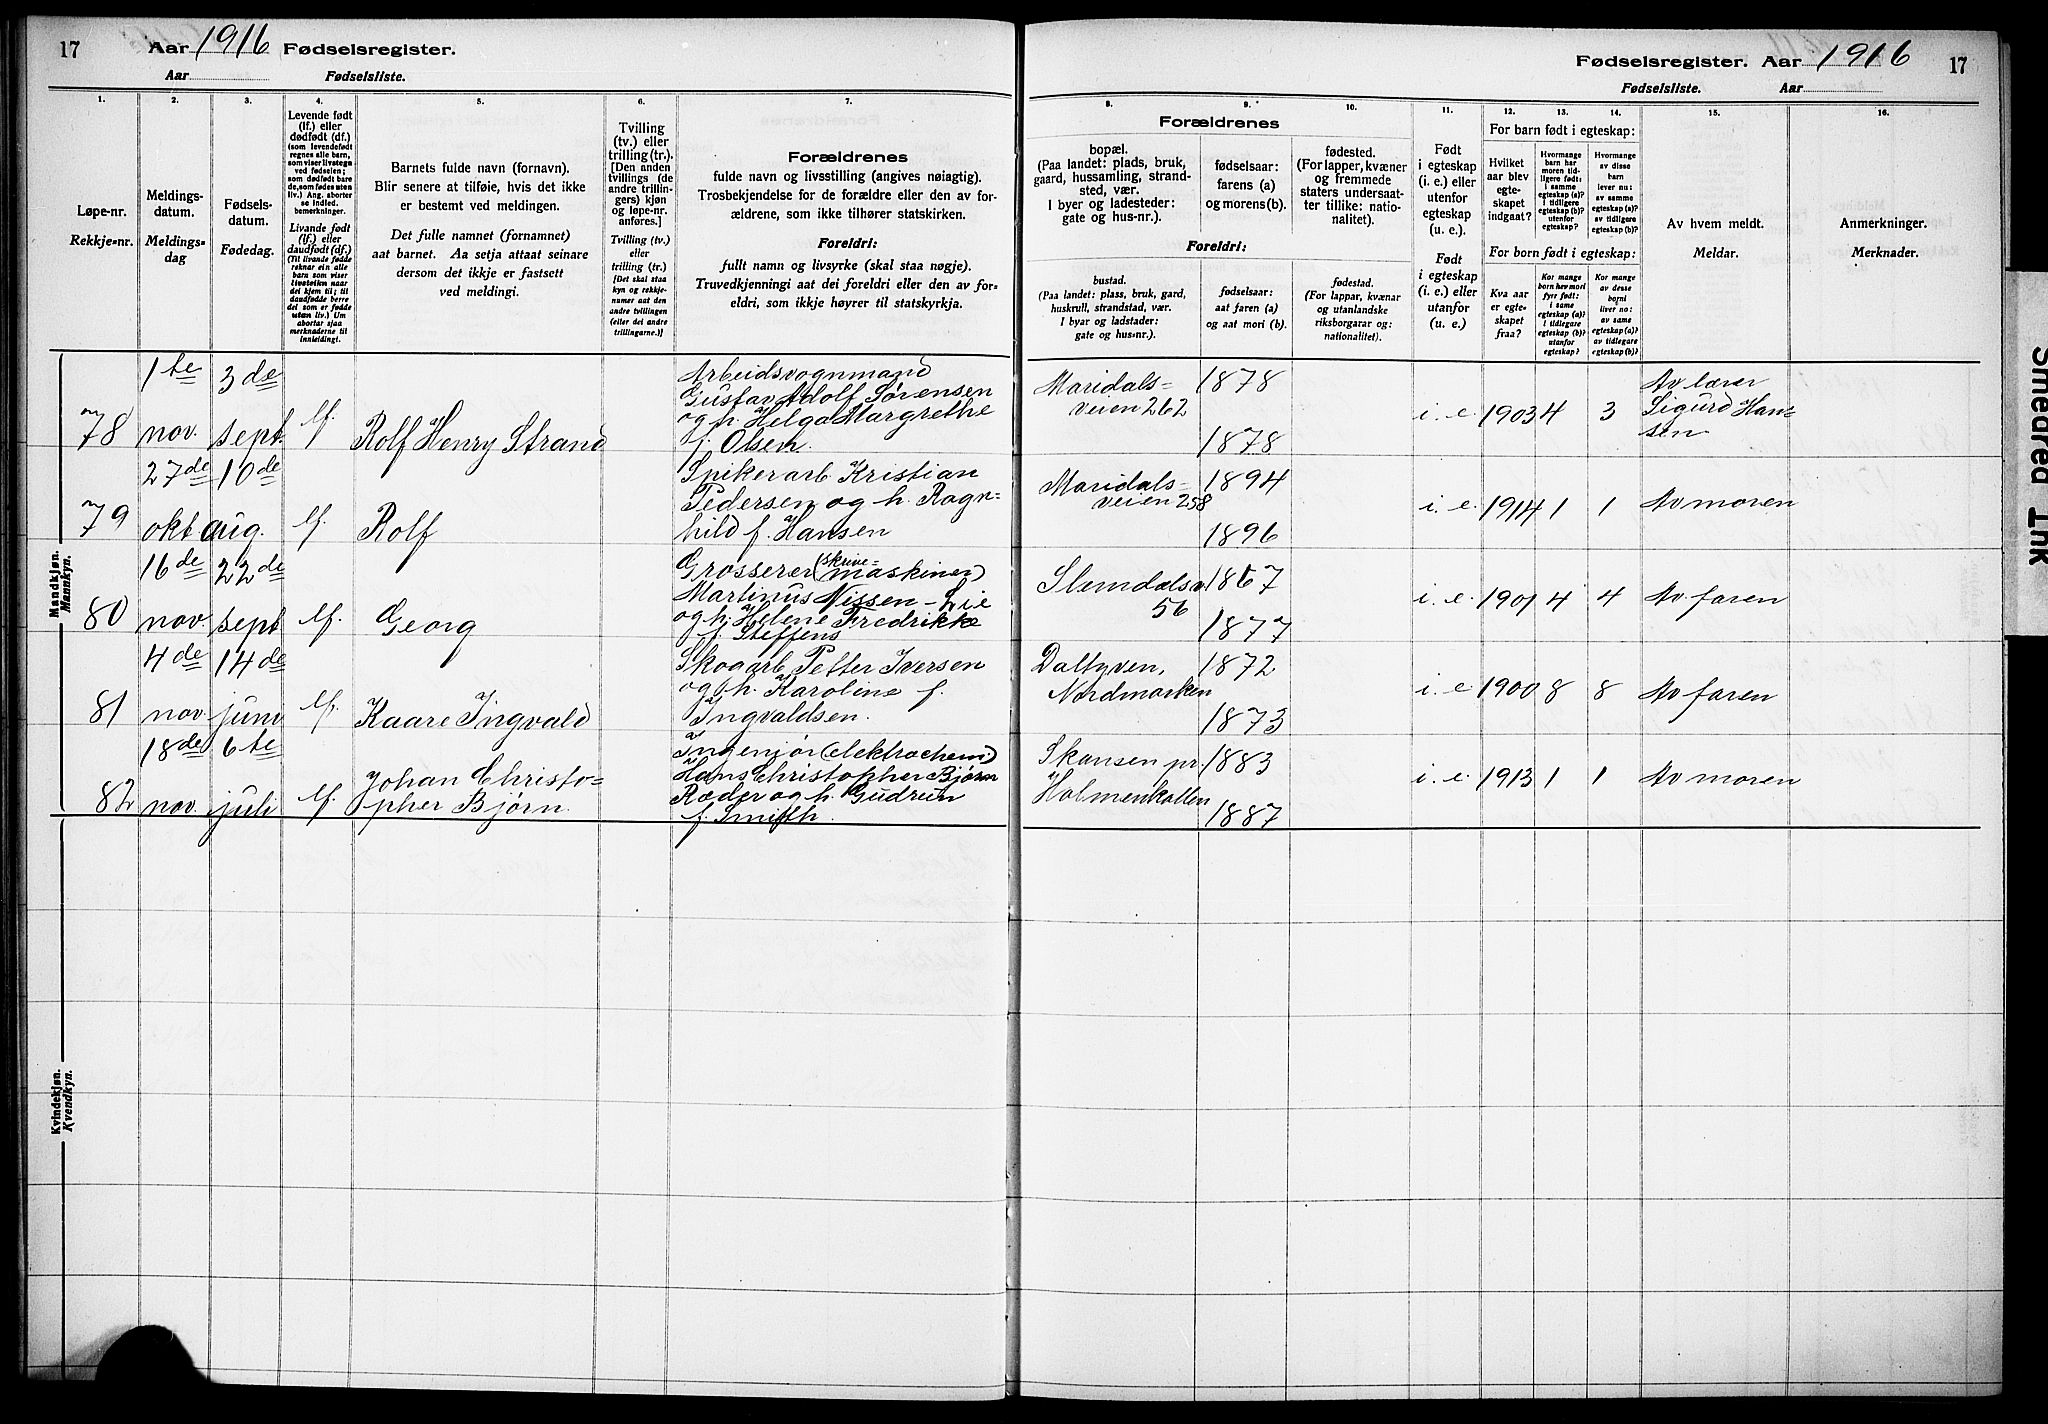 17 Aar 1916 Fødselsregister.
Aar Fødselsliste.
1. 2. 3. 4. 5. 6. 7.
Løpe-nr.
Rekkje-nr.
Meldings-
datum.
Meldings-
dag
Fødsels-
datum.
Fødedag.
Levende født
(lf.) eller
dødfødt (df.)
(som levendefødt
regnes alle barn,
som viser livstegn
ved fødselen;
som dødfødt bare
de, som fødes uten
liv.) Ang. aborter
se indled.
bemerkninger.
Livande født
(lf.) eller
daudfødt (df.)
(Til livande fødde
reknar ein alle
barn som viser
livsteikn naar
dei kjem til; til
daudfødde berre
dei som er fødde
utan liv.) Um
abortar sjaa
merknaderne til
innleidingi.
Barnets fulde navn (fornavn).
Blir senere at tilføie, hvis det ikke
er bestemt ved meldingen.
Det fulle namnet (fornamnet)
aat barnet. Aa setja attaat seinare
dersom det ikkje er fastsett
ved meldingi.
Tvilling
(tv.) eller
trilling (tr.).
[Den anden
tvillings (de
andre trillin-
gers) kjøn
og løpe-nr.
anføres.]
Tvilling (tv.)
eller
trilling (tr.)
[Det skal staa
kyn og rekkje-
numer aat den
andre tvillingen
(eller dei andre
trillingarne.)]
Forældrenes
fulde navn og livsstilling (angives nøiagtig).
Trosbekjendelse for de forældre eller den av for-
ældrene, som ikke tilhører statskirken.
Foreldri:
fullt namn og livsyrke (skal staa nøgje).
Truvedkjenningi aat dei foreldri eller den av for-
eldri, som ikkje høyrer til statskyrkja.
Mandkjøn.
Mannkyn.
78
1te
nov.
3de
sept.
lf.
Rolf Henry Strand
Arbeidsvognmand
Gustav Adolf Sørensen
og h. Helga Margrethe
f. Olsen.
79
27de
okt
10de
aug.
lf.
Rolf
Spikerarb. Kristian
Pedersen og h. Ragn=
hild f. Hansen
80
16de
nov.
22de
sept
lf.
Georg
Grosserer (skrive=
maskiner)
Martinus Nissen-Lie
og h. Helene Fredrikke
f. Steffens
81
4de
nov
14de
juni
lf.
Kaare Ingvald
Skogarb. Petter Iversen
og h. Karoline f.
Ingvaldsen.
82
18de
nov.
6te
juli
lf.
Johan Christo=
pher Bjørn.
Ingeniør (elektrochem.)
Hans Christopher Bjørn
Ræder og h. Gudrun
f. Smith.
Kvindekjøn.
Kvendkyn.
Fødselsregister. Aar 1916 17
Fødselsliste. Aar
8. 9. 10. 11. 12. 13. 14. 15. 16.
Forældrenes
bopæl.
(Paa landet: plads, bruk,
gaard, hussamling, strand-
sted, vær.
I byer og ladesteder:
gate og hus-nr.).
fødselsaar:
farens (a)
og morens (b).
fødested.
(For lapper, kvæner
og fremmede
staters undersaat-
ter tillike: natio-
nalitet).
Foreldri:
bustad.
(Paa landet: plass, bruk, gard,
huskrull, strandstad, vær.
I byar og ladstader:
gate og hus-nr.).
fødselsaar:
aat faren (a)
og aat mori (b).
fødestad.
(For lappar, kvænar
og utanlandske
riksborgarar og:
nationalitet).
Født
i egteskap
(i. e.) eller
utenfor
egteskap
(u. e.).
Født
i egteskap
(i. e.) eller
utanfor
(u. e.)
For barn født i egteskap:
Hvilket
aar blev
egte-
skapet
indgaat?
Hvormange
barn har
moren tid-
ligere født:
i samme
egteskap (a)?
i tidligere
egteskap (b)?
utenfor
egteskap?
Hvormange
av disse
barn
lever nu:
av samme
egteskap (a)?
av tidligere
egteskap (b)?
For born født i egteskap:
Kva aar
er egte-
skapet
fraa?
Kor mange
born hev mori
fyrr født:
i same
egteskap (a)?
i tidlegare
egteskap (b)?
utanfor
egteskap?
Kor mange
av desse
borni
liver no:
av same
egteskap (a)?
av tidlegare
egteskap (b)?
Av hvem meldt.
Meldar.
Anmerkninger.
Merknader.
Maridals=
veien 262
1878
1878
i. e. 1903 4 3
Av lærer
Sigurd Han=
sen
Maridals=
veien 258
1894
1896
i. e. 1914 1 1 Av moren
Slemdalsv.
56
1867
1877
i. e. 1901 4 4 Av faren
Daltyven,
Nordmarken
1872
1873
i. e. 1900 8 8 Av faren
Skansen pr.
Holmenkollen
1883
1887
i. e. 1913 1 1 Av moren
Smedred Ink